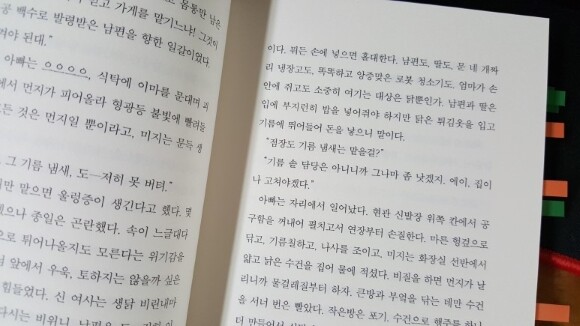 움통만 남은
가게를 맡기느냐! 그것이
공 백수로 발령받은 남편을 향한 일갈이었다.
겨야 된대."
아빠는 ㅇㅇㅇㅇ, 식탁에 이마를 문대며 괴
에서 먼지가 피어올라 형광등 불빛에 빨려들
든 것은 먼지일 뿐이라고, 미지는 문득 생
그 기름 냄새, 도―저히 못 버텨."
만 맡으면 울렁증이 생긴다고 했다. 몇
으나 종일은 곤란했다. 속이 느글대다
으로 튀어나올지도 모른다는 위기감을
앞에서 우욱, 토하지는 않을까 싶은
힘들었다. 신 여사는 생닭 비린내마
다시는 비위니, 남편은
이다. 뭐든 손에 넣으면 홀대한다. 남편도, 딸도, 문 네 개짜
리 냉장고도, 똑똑하고 앙증맞은 로봇 청소기도. 엄마가 손
안에 쥐고도 소중히 여기는 대상은 닭뿐인가. 남편과 딸은
입에 부지런히 밥을 넣어줘야 하지만 닭은 튀김옷을 입고
기름에 뛰어들어 돈을 낳으니 말이다.
"집장도 기름 냄새는 맡을걸?"
"기름 솥 담당은 아니니까 그나마 좀 낫겠지. 에이, 집이
나 고쳐야겠다."
아빠는 자리에서 일어났다. 현관 신발장 위쪽 칸에서 공
구함을 꺼내어 펼치고서 연장부터 손질한다. 마른 헝겊으로
닦고, 기름칠하고, 나사를 조이고, 미지는 화장실 선반에서
얇고 낡은 수건을 집어 물에 적셨다. 비질을 하면 먼지가 날
리니까 물걸레질부터 하자. 큰방과 부엌을 닦는 데만 수건
을 서너 번은 빨았다. 작은방은 포기. 수건으로 행주를 하나
더 만들어서